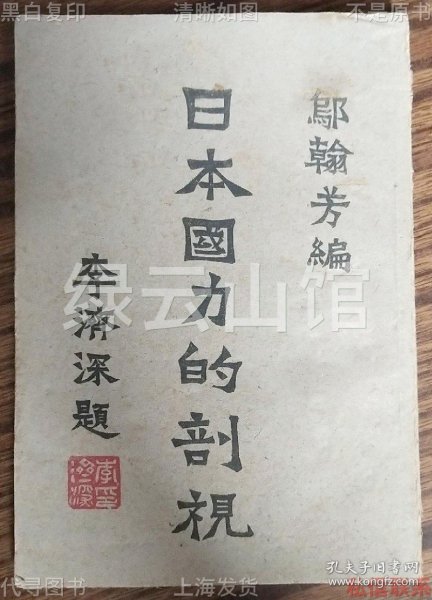 黑白复印
清晰如图
不是原书
鄔翰芳編
日本國力的剖視
李濟深題
绿云山馆
孔夫子旧书网
www.kongfz.com
代寻图书
上海发货
私信联系